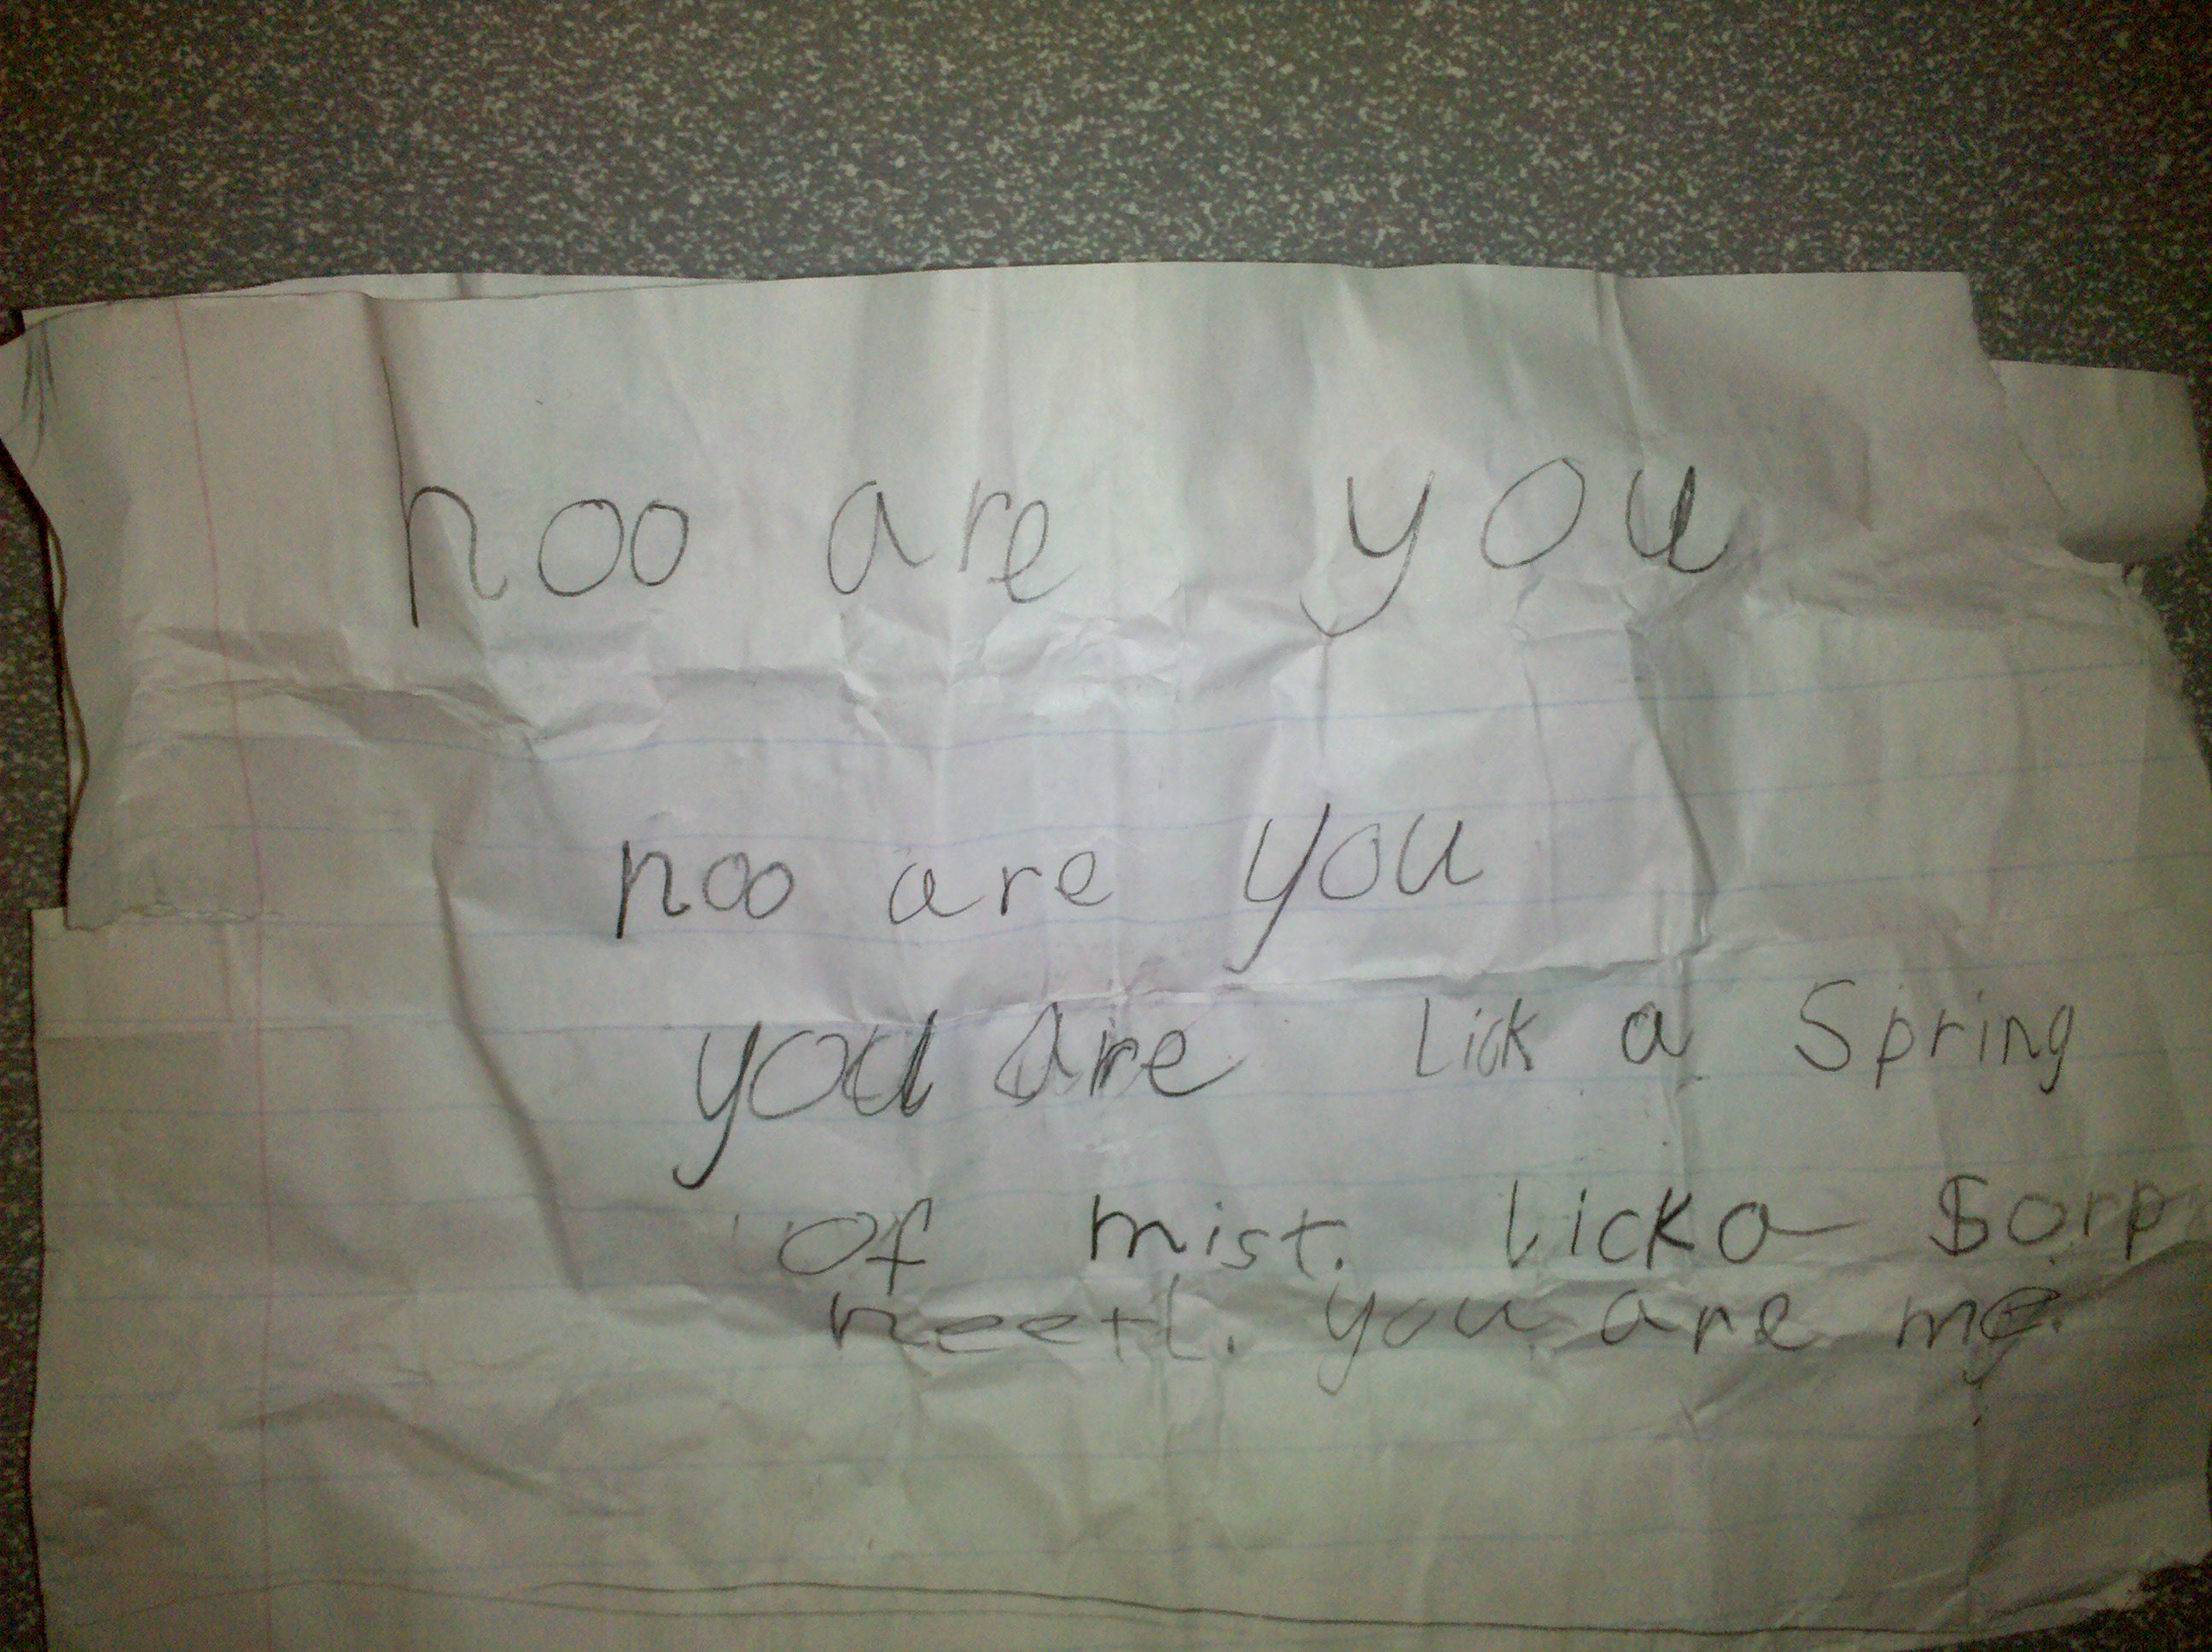 hoo are you
hoo are you
you are Lick a Spring
of mist. lick a Sorp
neetl. you are me